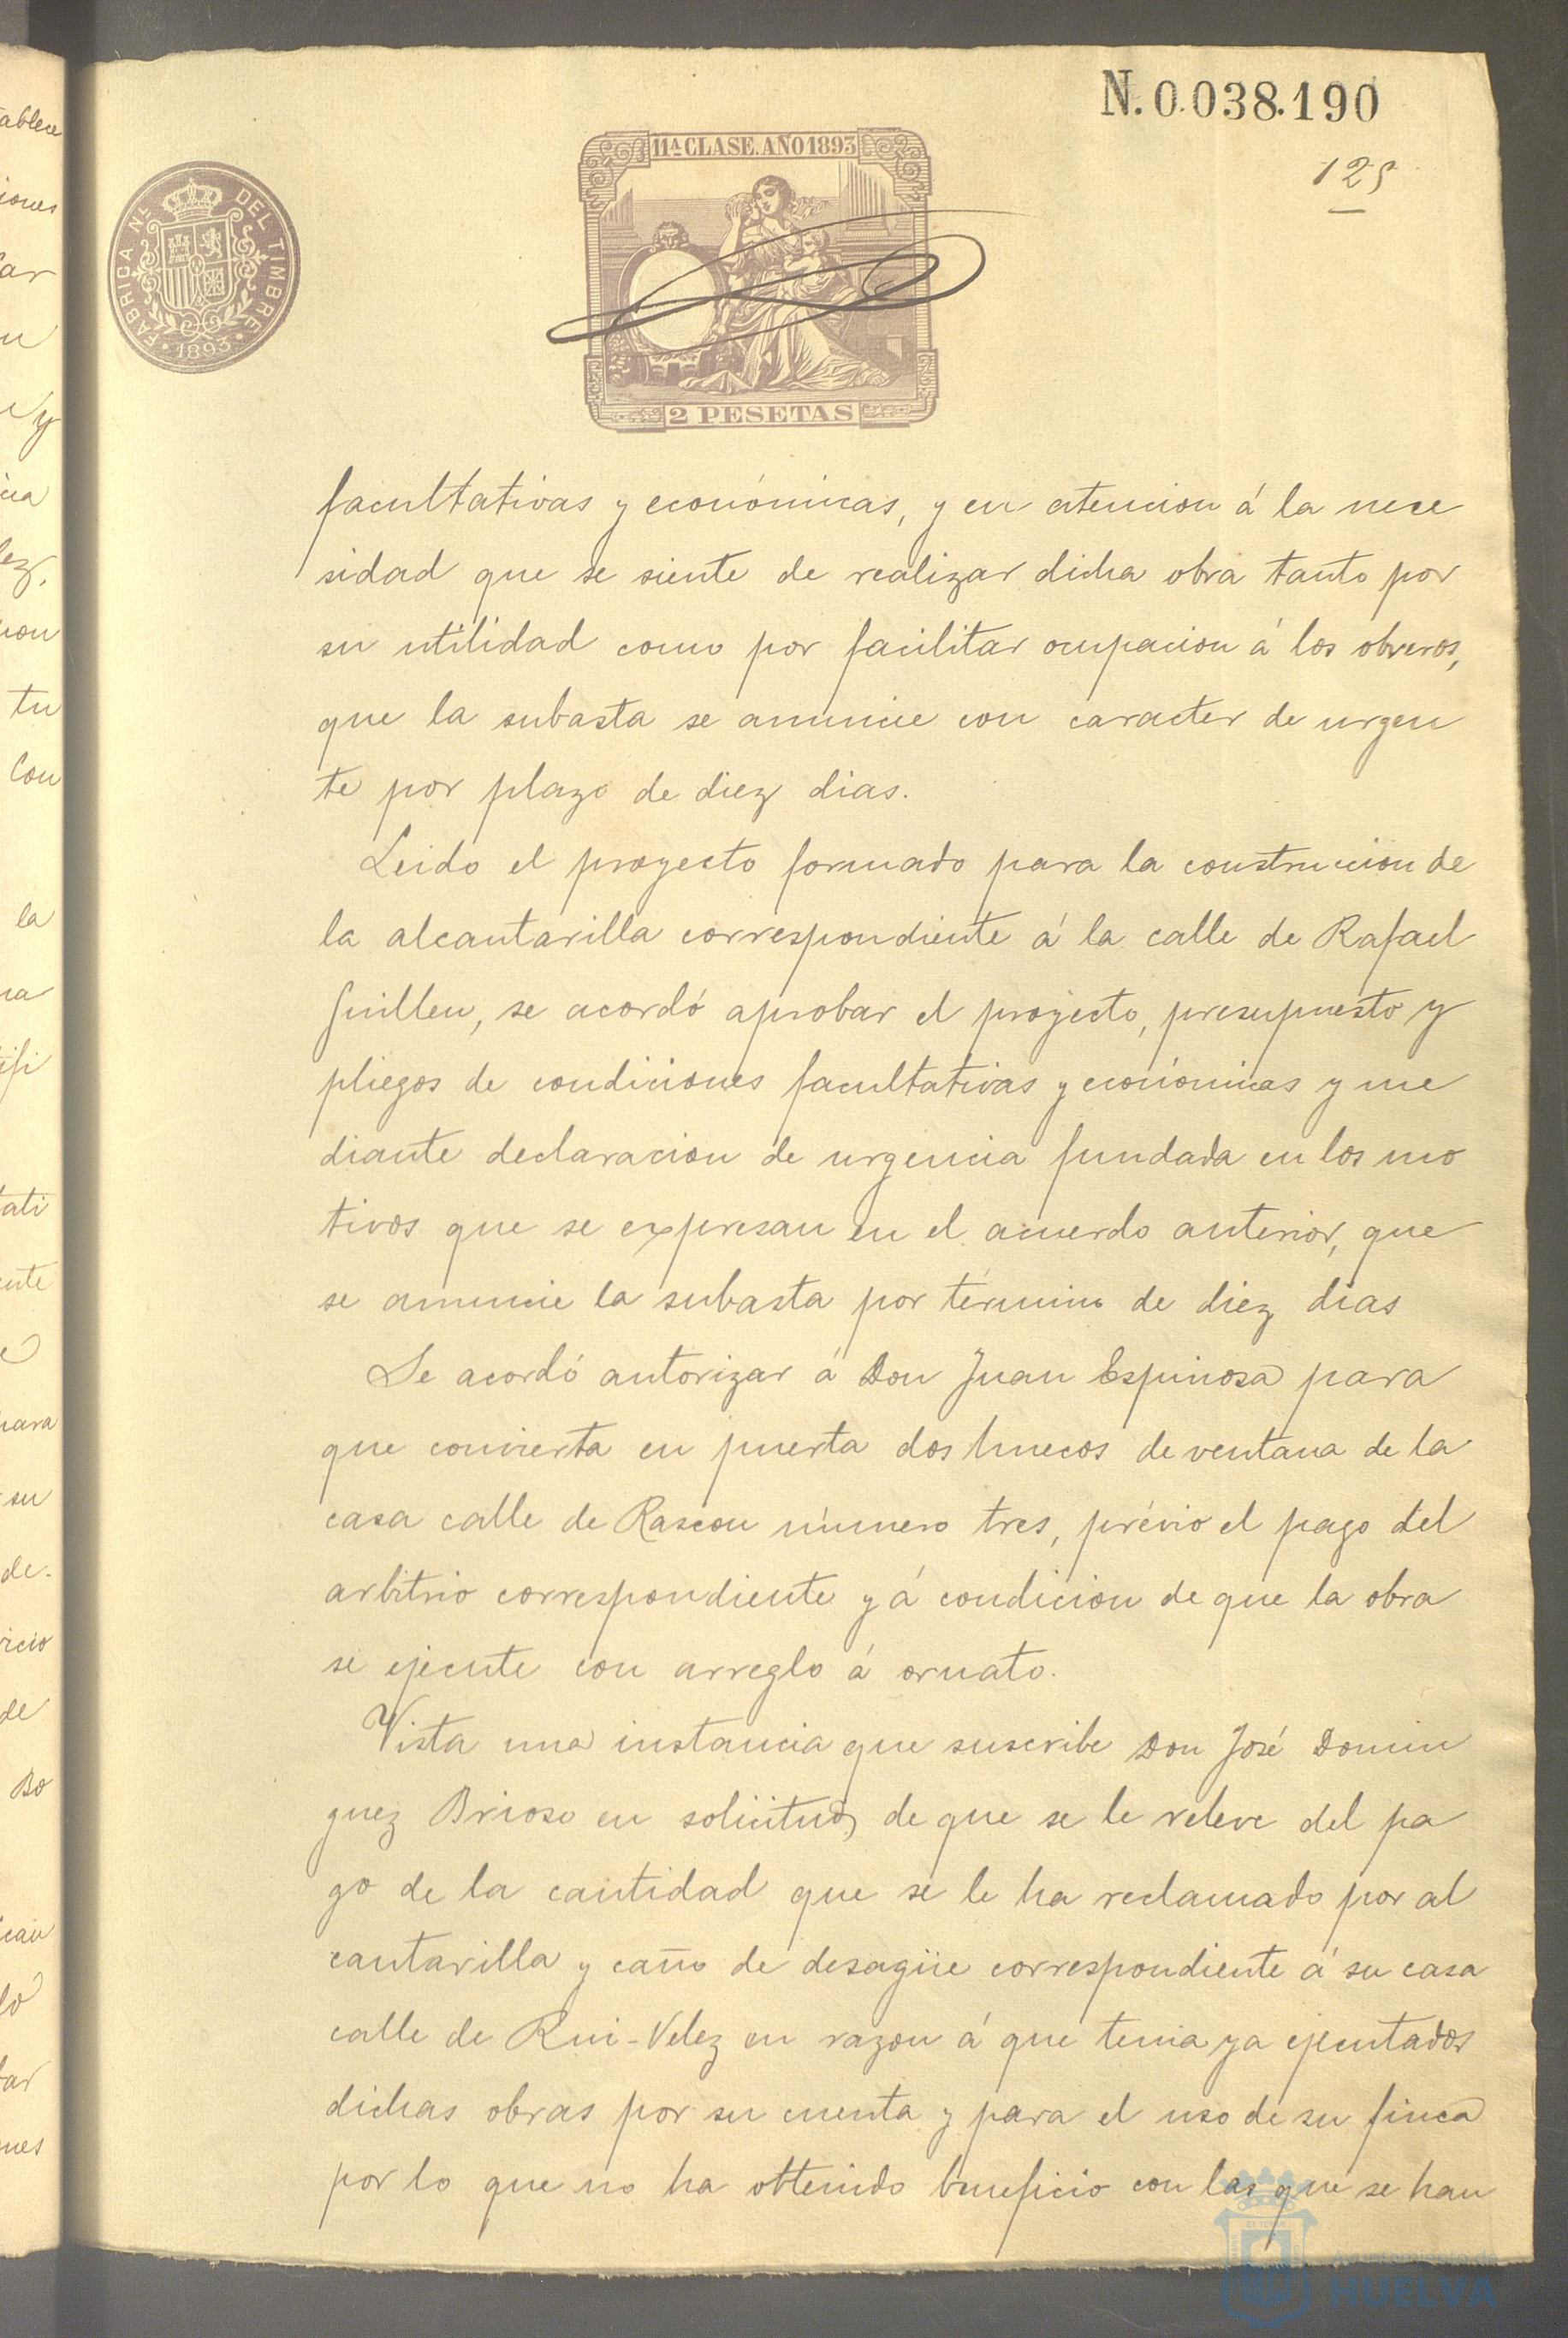 N. 0.038.190
125
11ª CLASE. AÑO 1893
FABRICA NL. DEL TIMBRE
1893
2 PESETAS
facultativas y económicas, y en atencion á la nece
sidad que se siente de realizar dicha obra tanto por
su utilidad como por facilitar ocupacion á los obreros,
que la subasta se anuncie con caracter de urgen
te por plazo de diez dias.
Leido el proyecto formado para la construccion de
la alcantarilla correspondiente á la calle de Rafael
Guillen, se acordó aprobar el proyecto, presupuesto y
pliegos de condiciones facultativas y económicas y me
diante declaracion de urgencia fundada en los mo
tivos que se expresan en el acuerdo anterior, que
se anuncie la subasta por término de diez dias
Se acordó autorizar á Don Juan Espinosa para
que convierta en puerta dos huecos de ventana de la
casa calle de Rascon número tres, prévio el pago del
arbitrio correspondiente y á condicion de que la obra
se ejecute con arreglo á ornato.
Vista una instancia que suscribe Don José Domin
guez Brioso en solicitud de que se le releve del pa
go de la cantidad que se le ha reclamado por al
cantarilla y caño de desagüe correspondiente á su casa
calle de Rui-Velez en razon á que tenia ya ejecutados
dichas obras por su cuenta y para el uso de su finca
por lo que no ha obtenido beneficio con las que se han
HUELVA